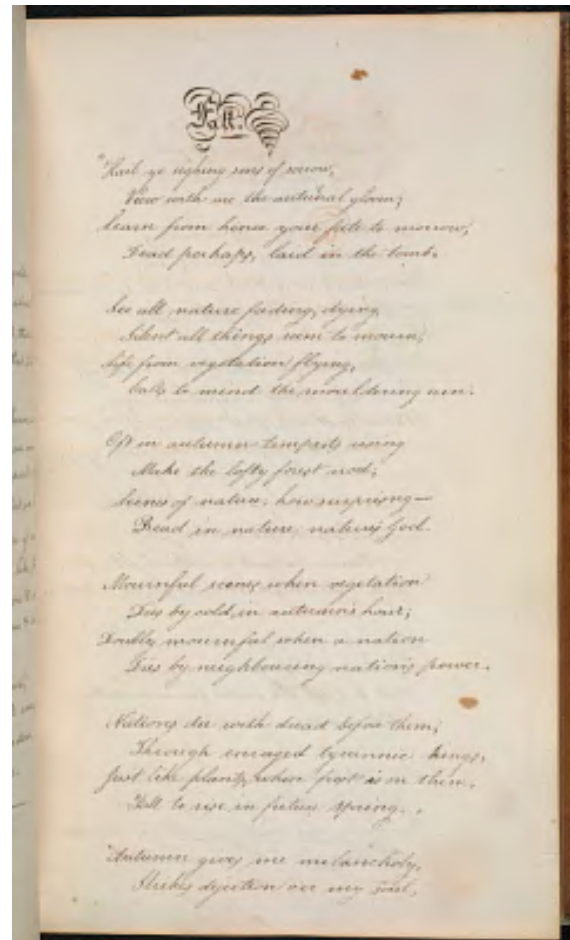 Fall.
"Hail ye sighing sons of sorrow,
View with me the autumnal gloom;
Learn from hence your fate to morrow,
Dead perhaps, laid in the tomb.
See all nature fading, dying
Silent all things seem to mourn;
Life from vegetation flying,
Calls to mind the mouldering urn.
Oft in autumn tempests rising
Make the lofty forest nod;
Scenes of nature, how surprising—
Read in nature, nature's God.
Mournful scenes when vegetation
Dies by cold, in autumn's hour;
Doubly mournful when a nation
Dies by neighbouring nation's power.
Nations die with dread before them,
Through enraged tyrannic kings,
Just like plants, when frost is on them,
Fall to rise in future spring.
Autumn gives me melancholy,
Strikes dejection on my soul,